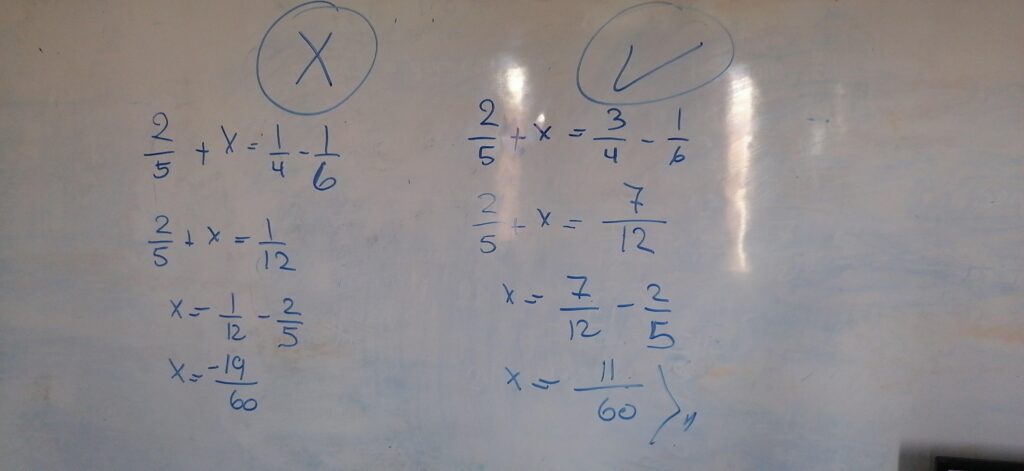 X
2/5 + x = 1/4 - 1/6
2/5 + x = 1/12
x = 1/12 - 2/5
x = -19/60
✓
2/5 + x = 3/4 - 1/6
2/5 + x = 7/12
x = 7/12 - 2/5
x = 11/60